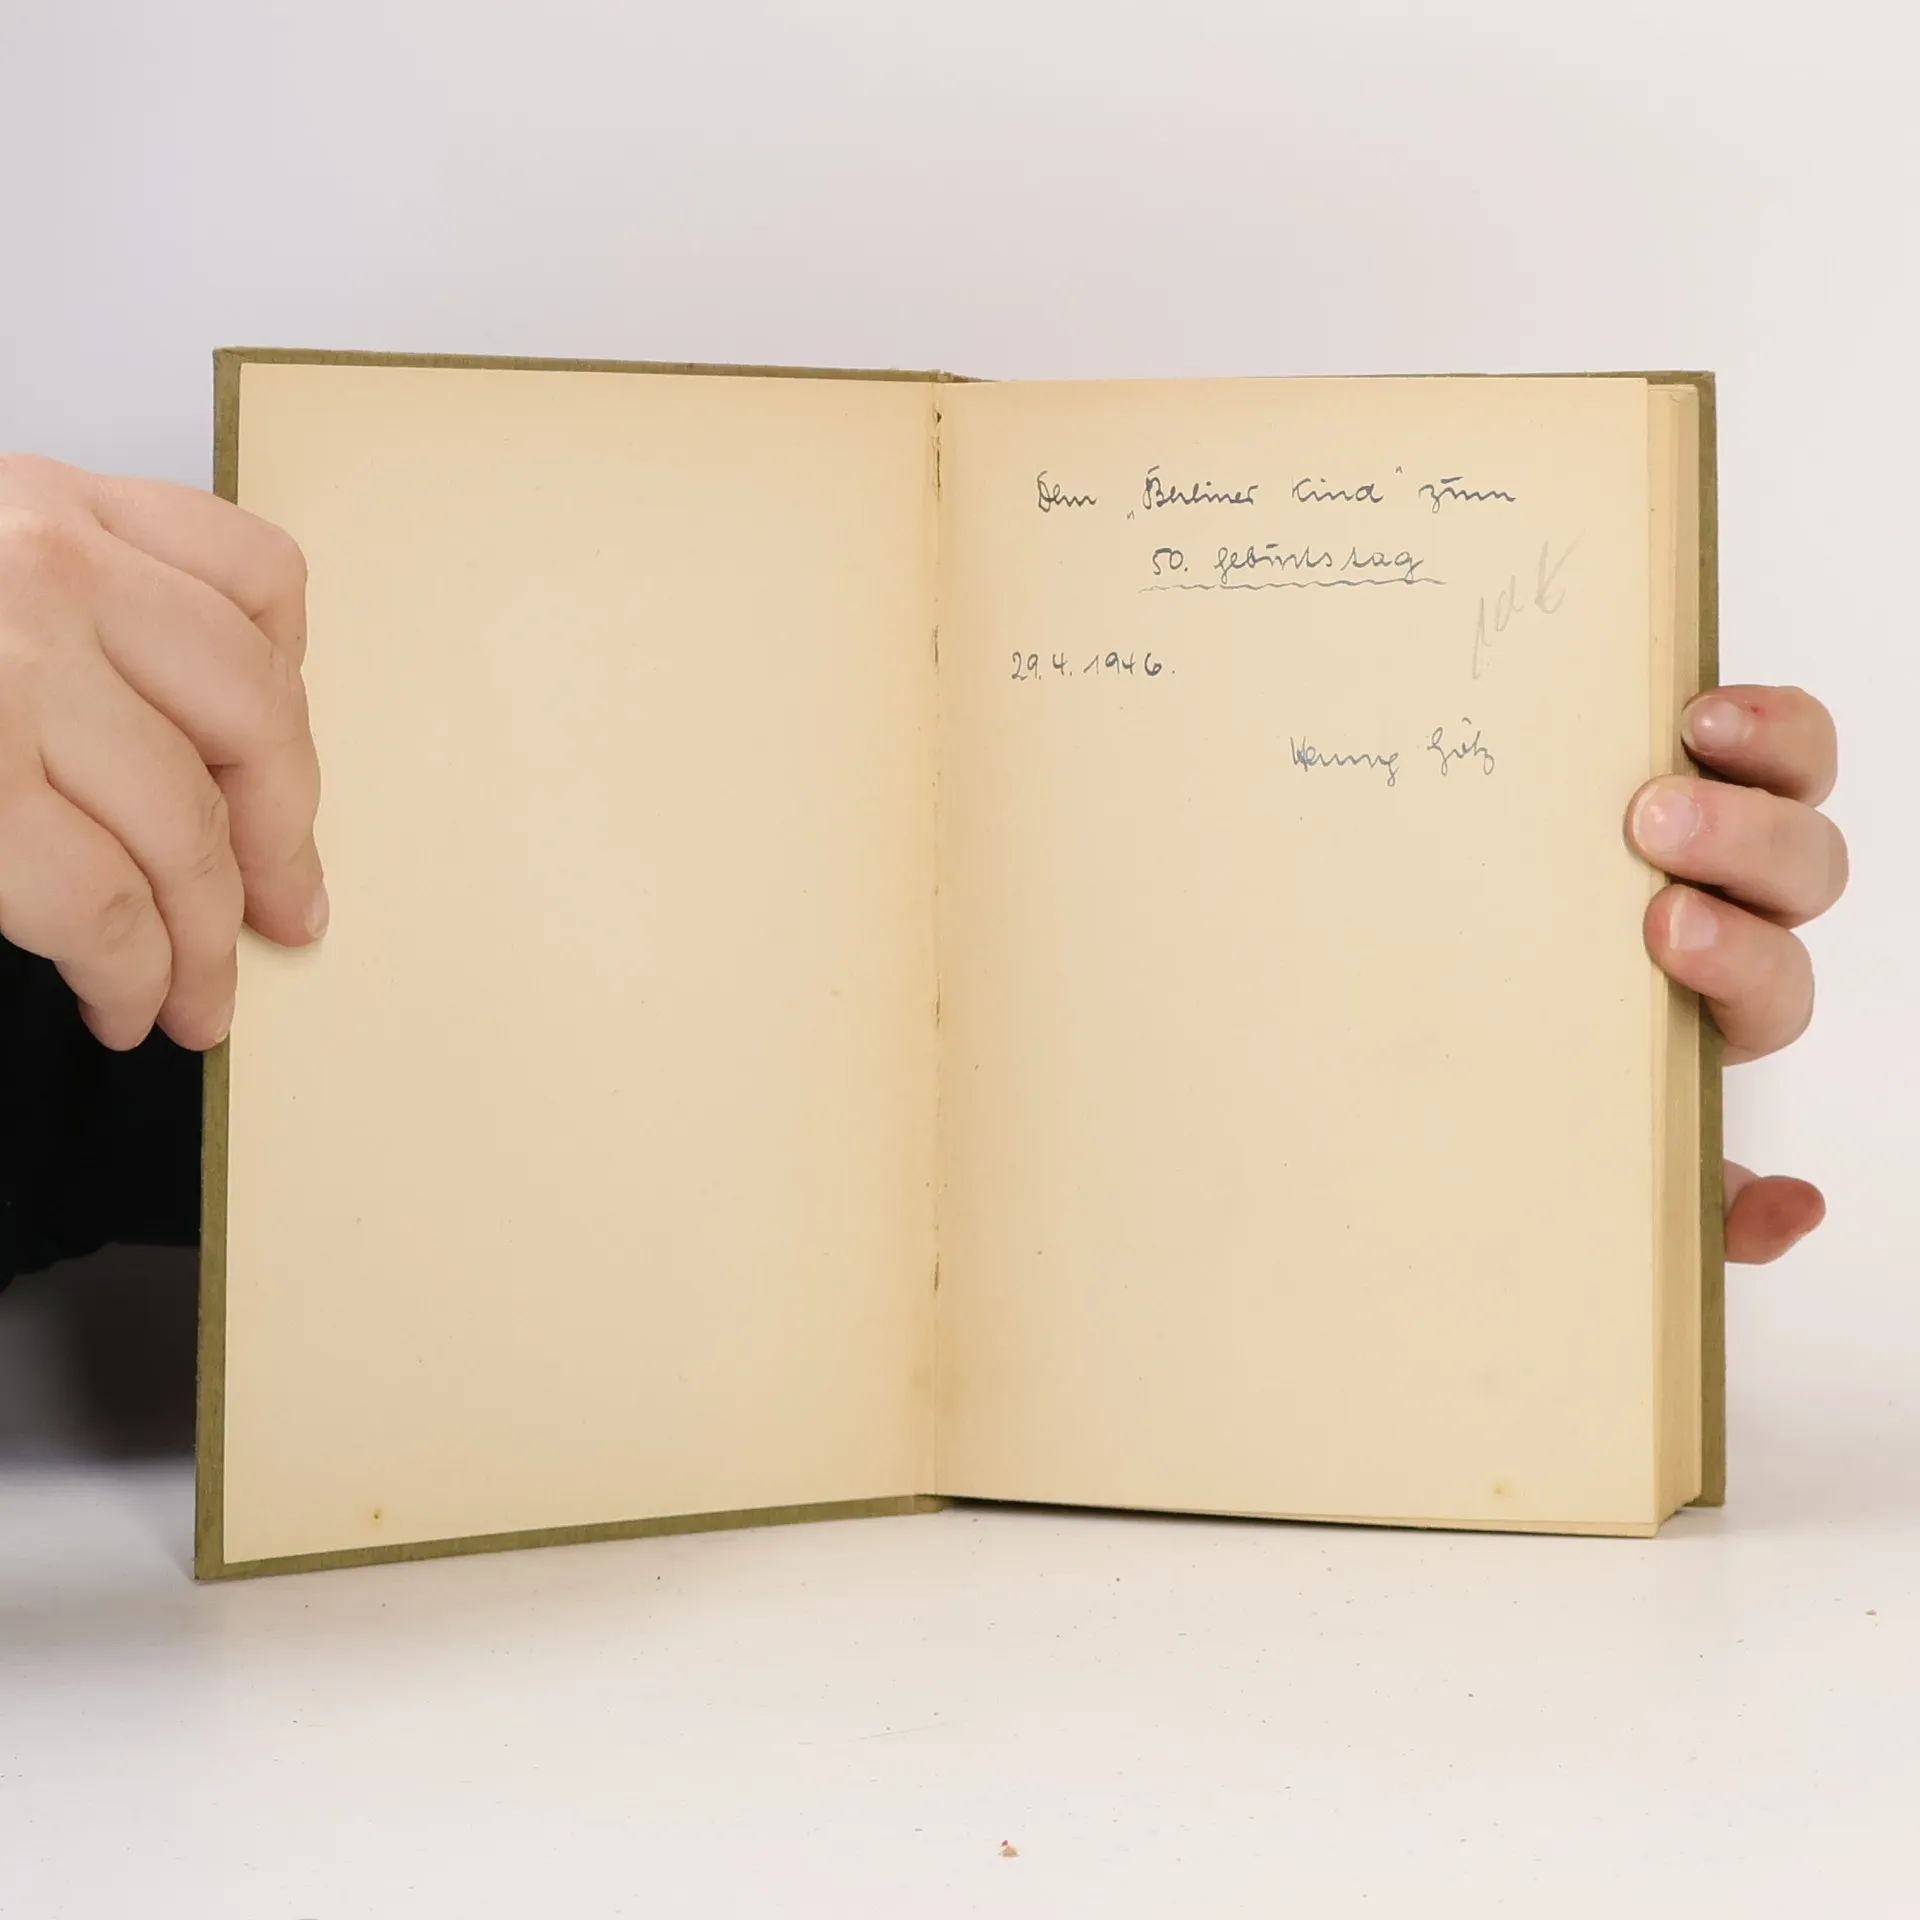 Dem „Berliner Kind“ zum
50. Geburtstag
29.4.1946.
Götz